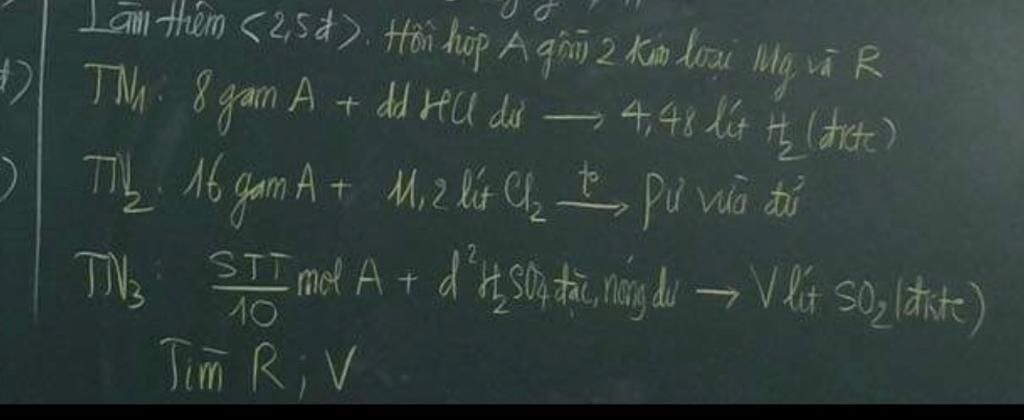 Làm thêm <2,5đ>. Hỗn hợp A gồm 2 kim loại Mg và R
TN1: 8 gam A + dd HCl dư → 4,48 lít H2 (đktc)
TN2: 16 gam A + 11,2 lít Cl2 t° → pứ vừa đủ
TN3: STT/10 mol A + d² H2SO4 đặc, nóng dư → V lít SO2 (đktc)
Tìm R ; V